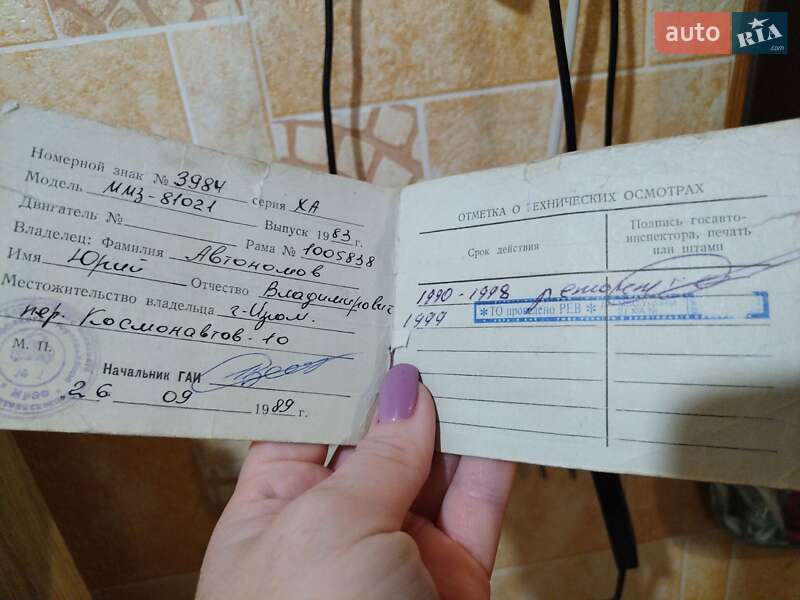 auto RIA.com
Номерной знак № 3984 серия ХА
Модель ММЗ-81021
Двигатель № Выпуск 1983 г.
Владелец: Фамилия Рама № 1005838
Автономов
Имя Юрий Отчество Владимирович
Местожительство владельца г. Изюм.
пер. Космонавтов-10
М. П.
Начальник ГАИ
26 09 1989 г.
ОТМЕТКА О ТЕХНИЧЕСКИХ ОСМОТРАХ
Срок действия
Подпись госавто-
инспектора, печать
или штамп
1990-1998
1999 *ТО проведено РЕВ*